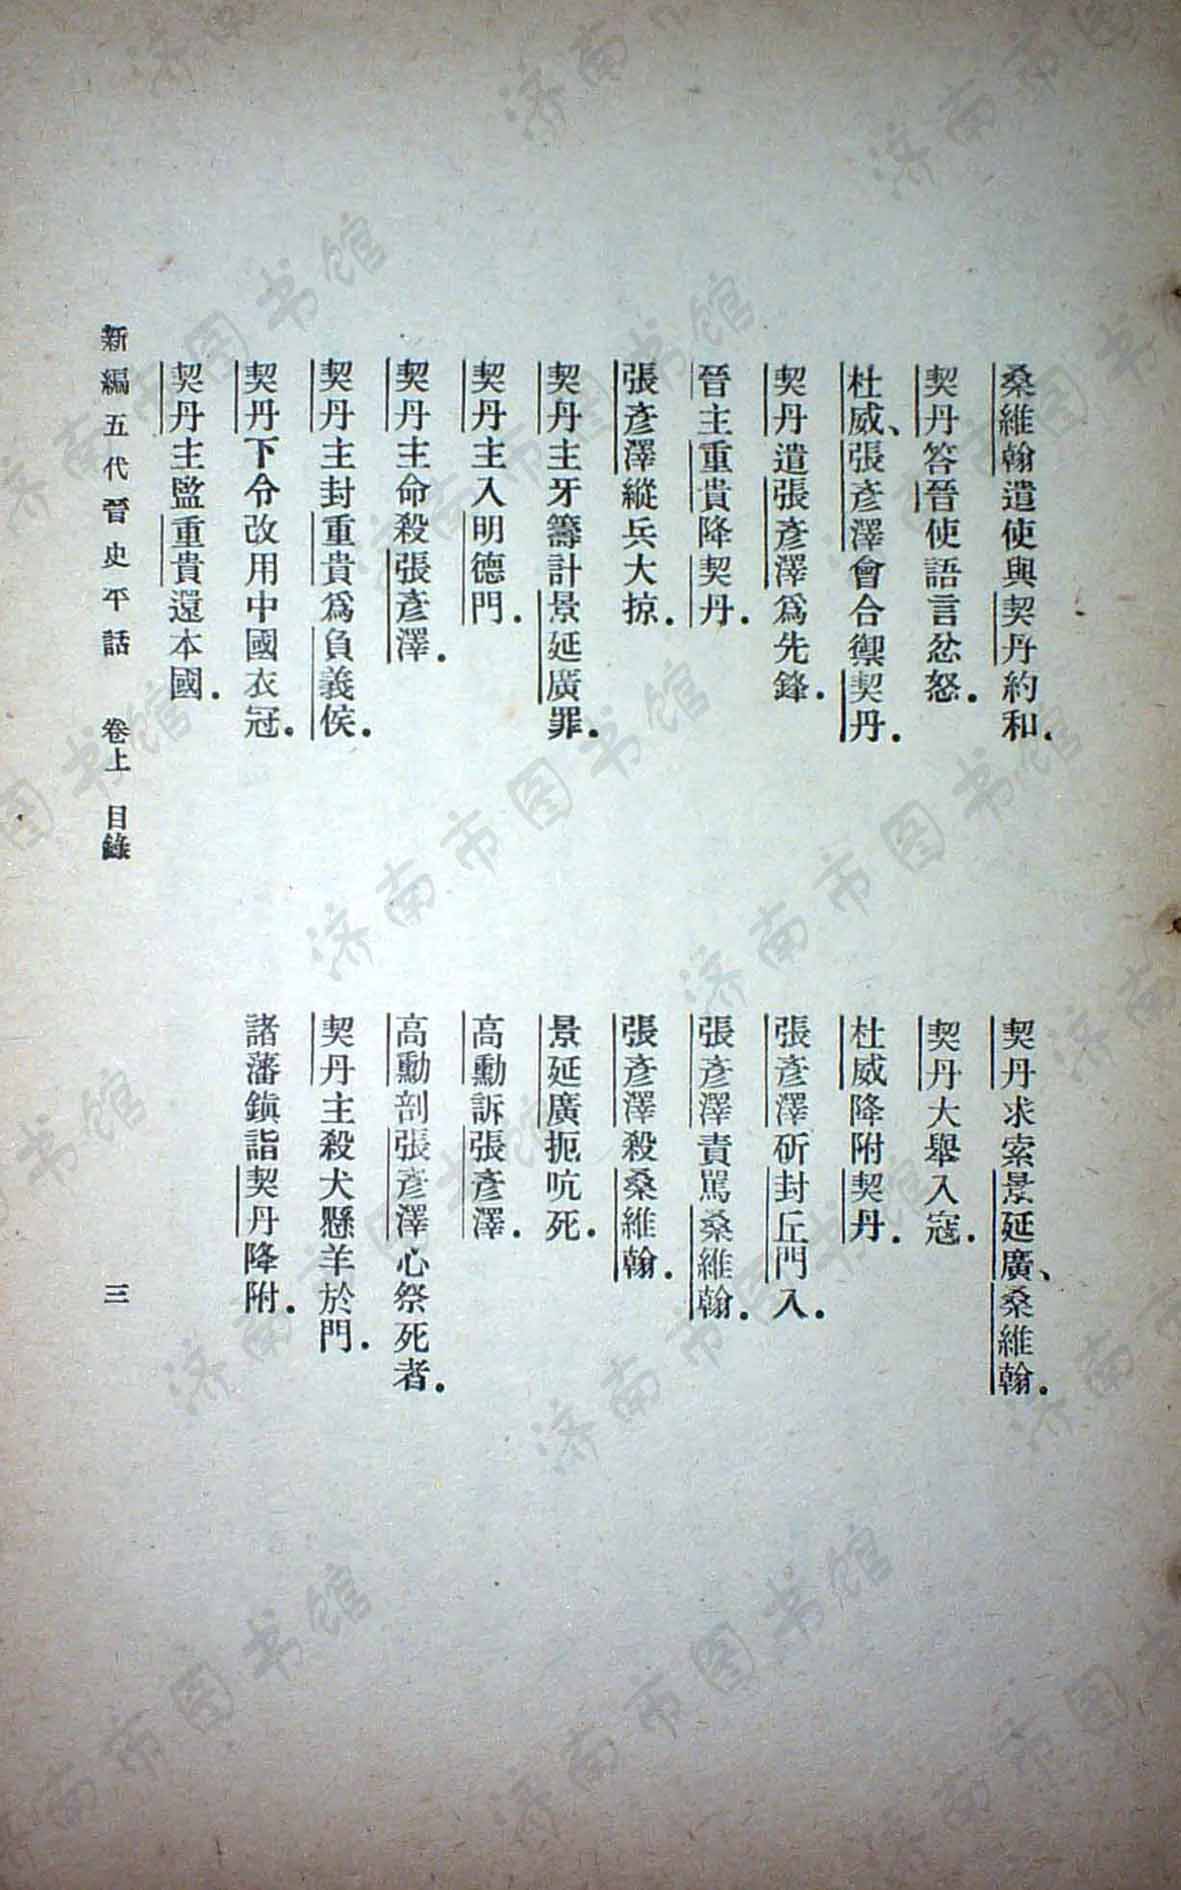 桑維翰遣使與契丹約和．
契丹求索景延廣、桑維翰．
契丹答晉使語言忿怒．
契丹大舉入寇．
杜威、張彥澤會合禦契丹．
杜威降附契丹．
契丹遣張彥澤爲先鋒．
張彥澤斫封丘門入．
晉主重貴降契丹．
張彥澤責駡桑維翰．
張彥澤縱兵大掠．
張彥澤殺桑維翰．
契丹主牙籌計景延廣罪．
景延廣扼吭死．
契丹主入明德門．
高勳訴張彥澤．
契丹主命殺張彥澤．
高勳剖張彥澤心祭死者．
契丹主封重貴爲負義侯．
契丹主殺犬懸羊於門．
契丹下令改用中國衣冠．
諸藩鎮詣契丹降附．
契丹主監重貴還本國．
新編五代晉史平話　卷上　目錄　三
济南市图书馆